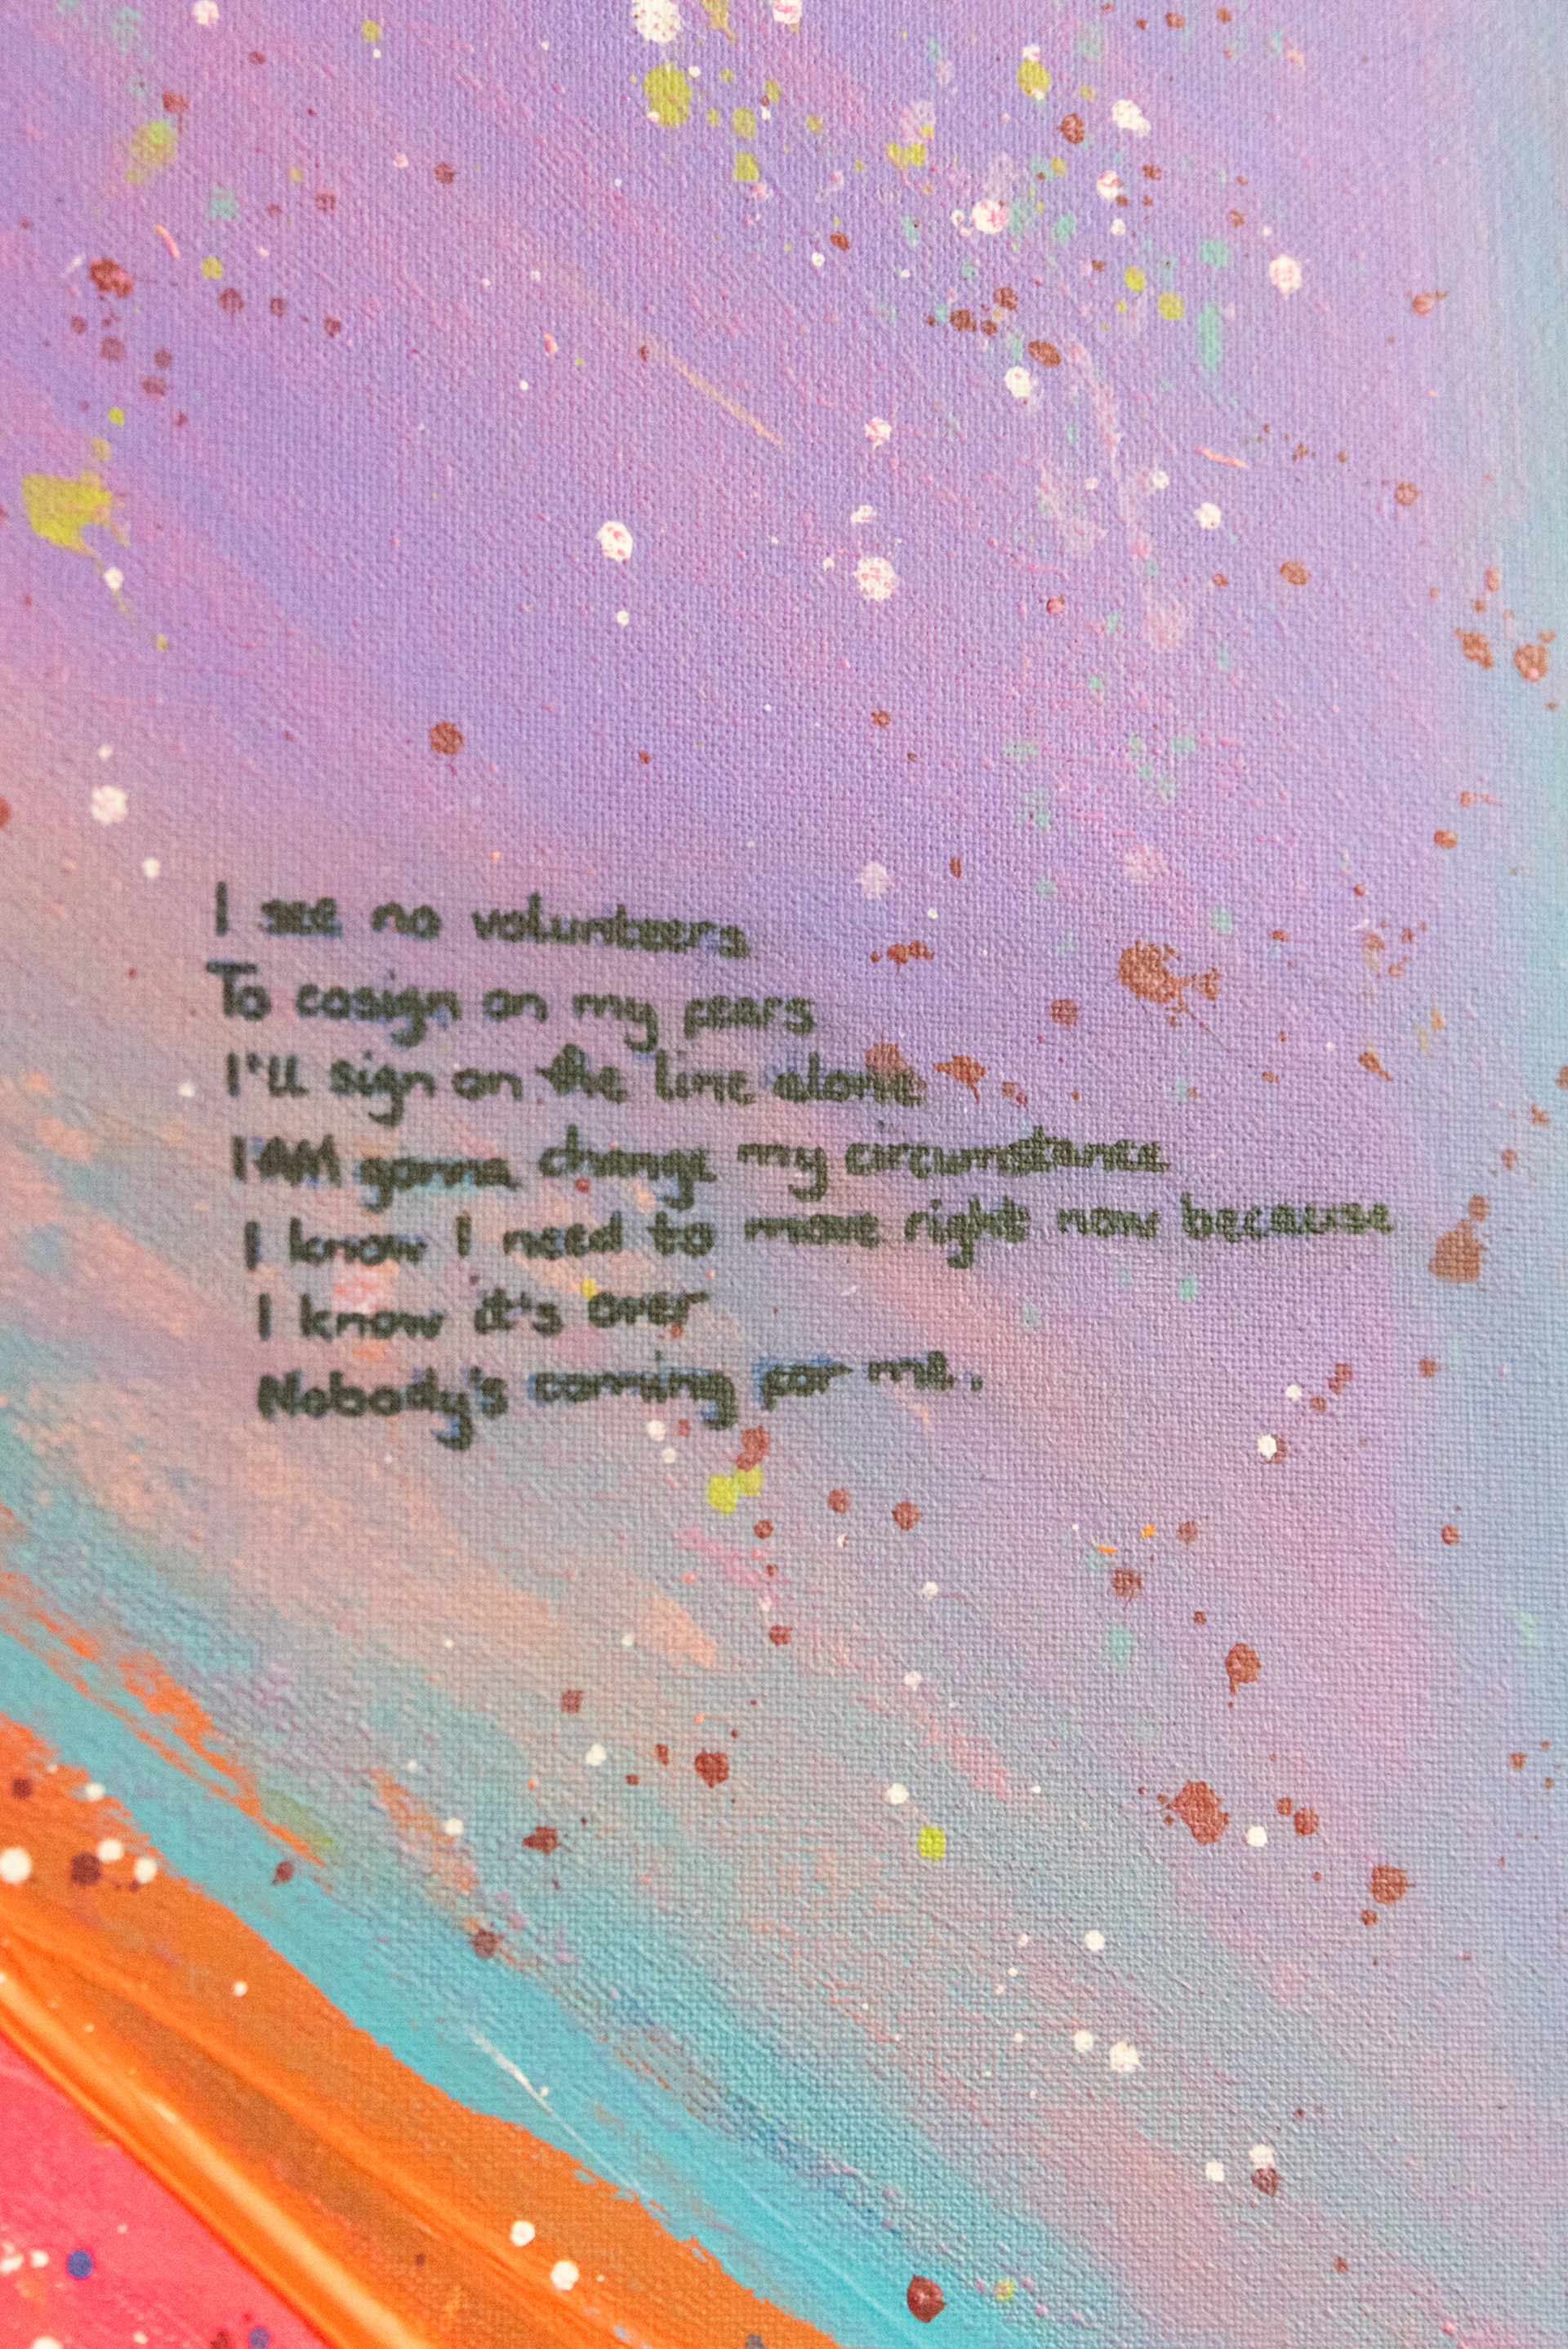 I see no volunteers
To cosign on my fears
I'll sign on the line alone
I AM gonna change my circumstance
I know I need to move right now because
I know it's over
Nobody's coming for me.